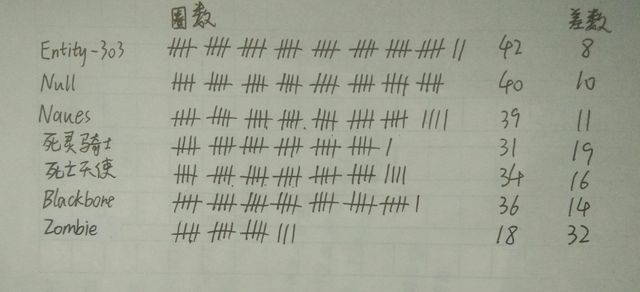 圈数 差数
Entity-303 卌 卌 卌 卌 卌 卌 卌 卌 || 42 8
Null 卌 卌 卌 卌 卌 卌 卌 卌 40 10
Naues 卌 卌 卌 卌 卌 卌 卌 |||| 39 11
死灵骑士 卌 卌 卌 卌 卌 卌 | 31 19
死亡天使 卌 卌 卌 卌 卌 卌 |||| 34 16
Blackbone 卌 卌 卌 卌 卌 卌 卌 | 36 14
Zombie 卌 卌 卌 ||| 18 32